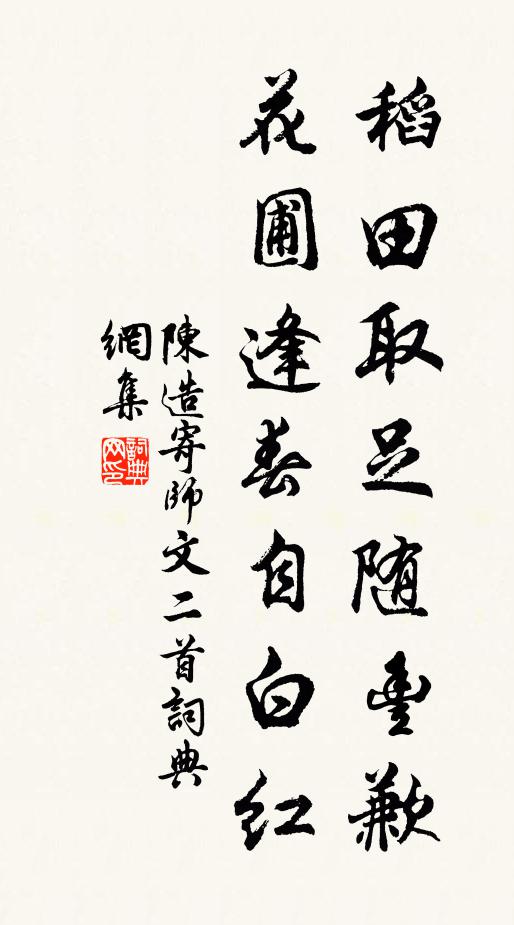 稻田取足随豐歉
花圃逢春自白红
陳造寄師文二首詞典
網集
詞典
网印